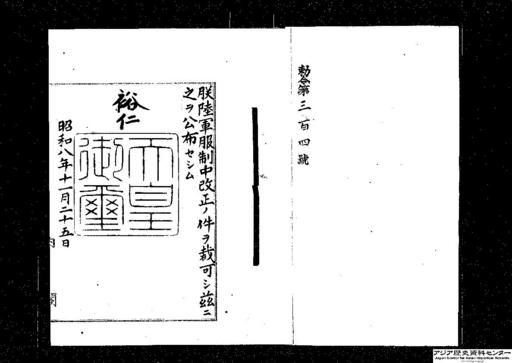 勅令第三百四號
朕陸軍服制中改正ノ件ヲ裁可シ茲ニ
之ヲ公布セシム
裕仁
天皇
御璽
昭和八年十一月二十五日
内
閣
アジア歴史資料センター
Japan Center for Asian Historical Records